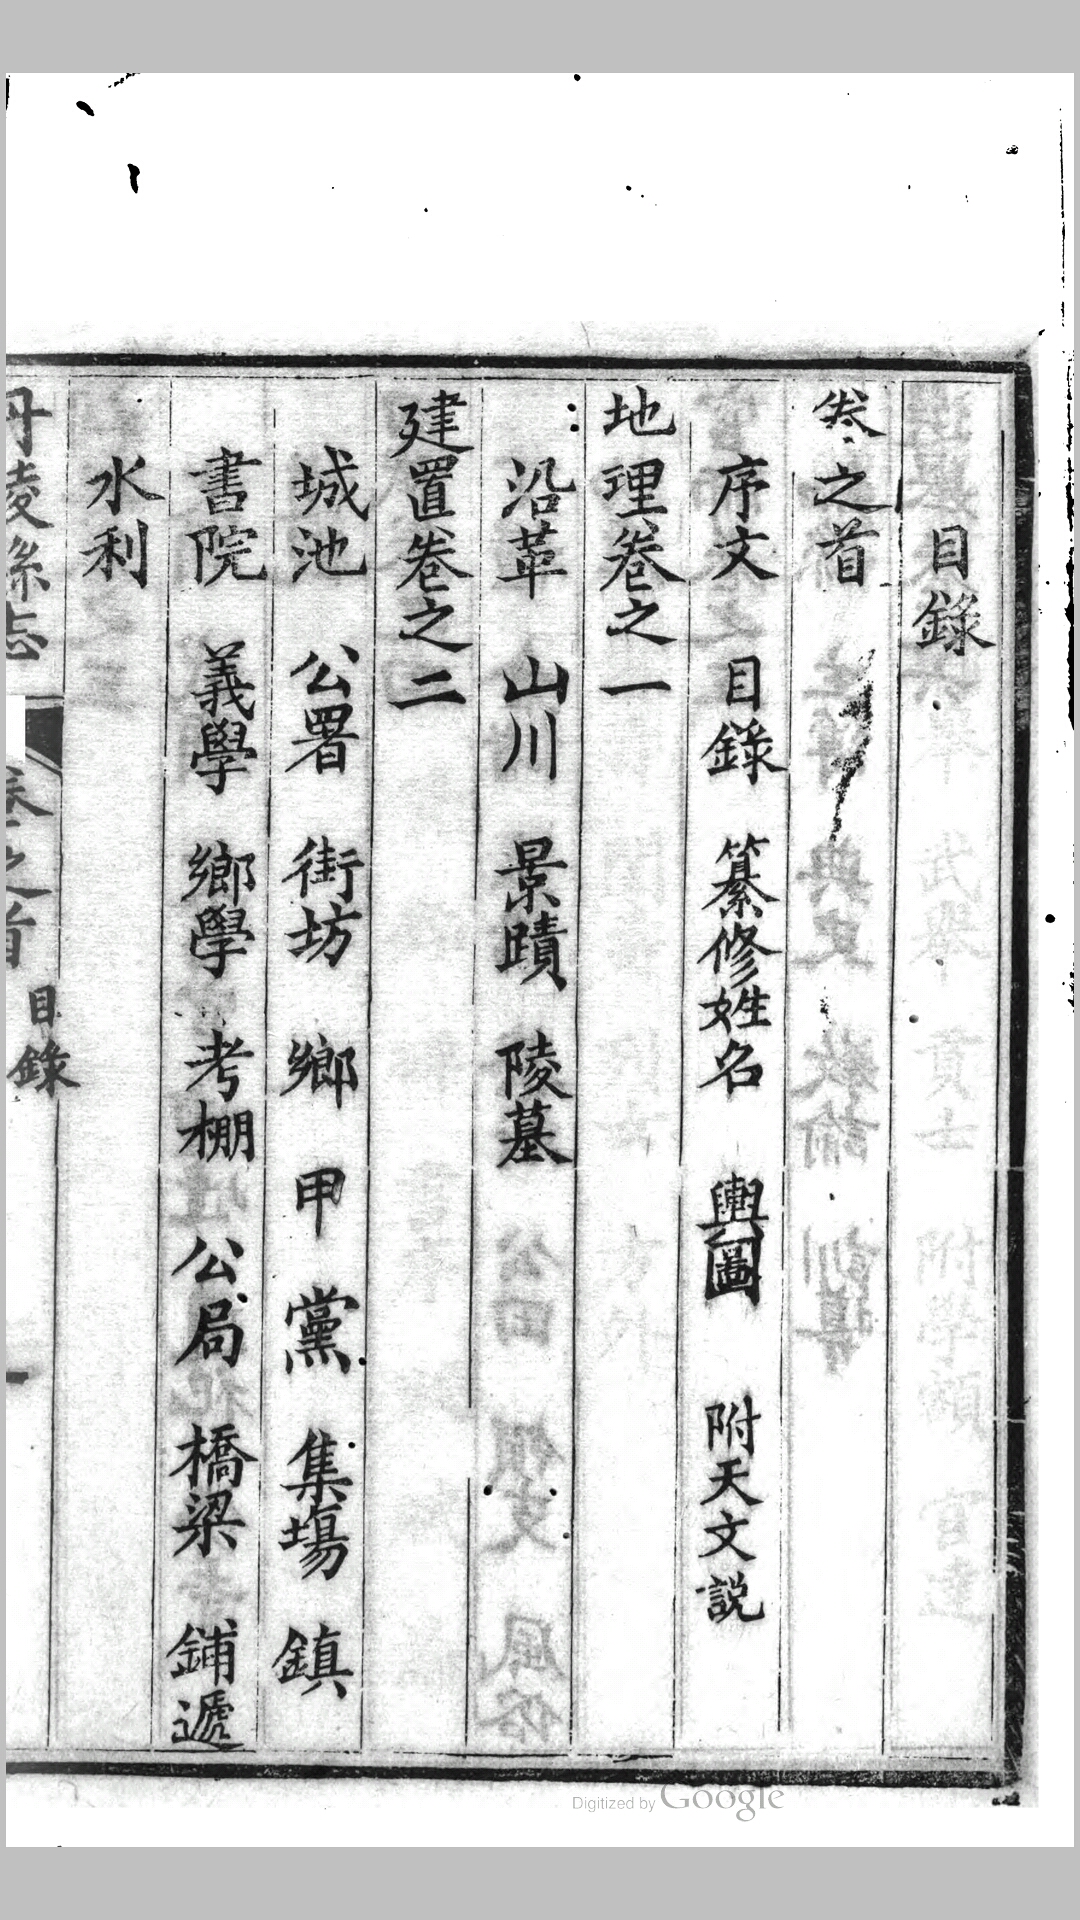 目錄
卷之首
序文 目錄 纂修姓名 輿圖 附天文説
地理卷之一
沿革 山川 景蹟 陵墓
建置卷之二
城池 公署 街坊 鄉 甲 黨 集塲 鎮
書院 義學 鄉學 考棚 公局 橋梁 鋪遞
水利
丹稜縣志 卷之首 目錄 一
Digitized by Google